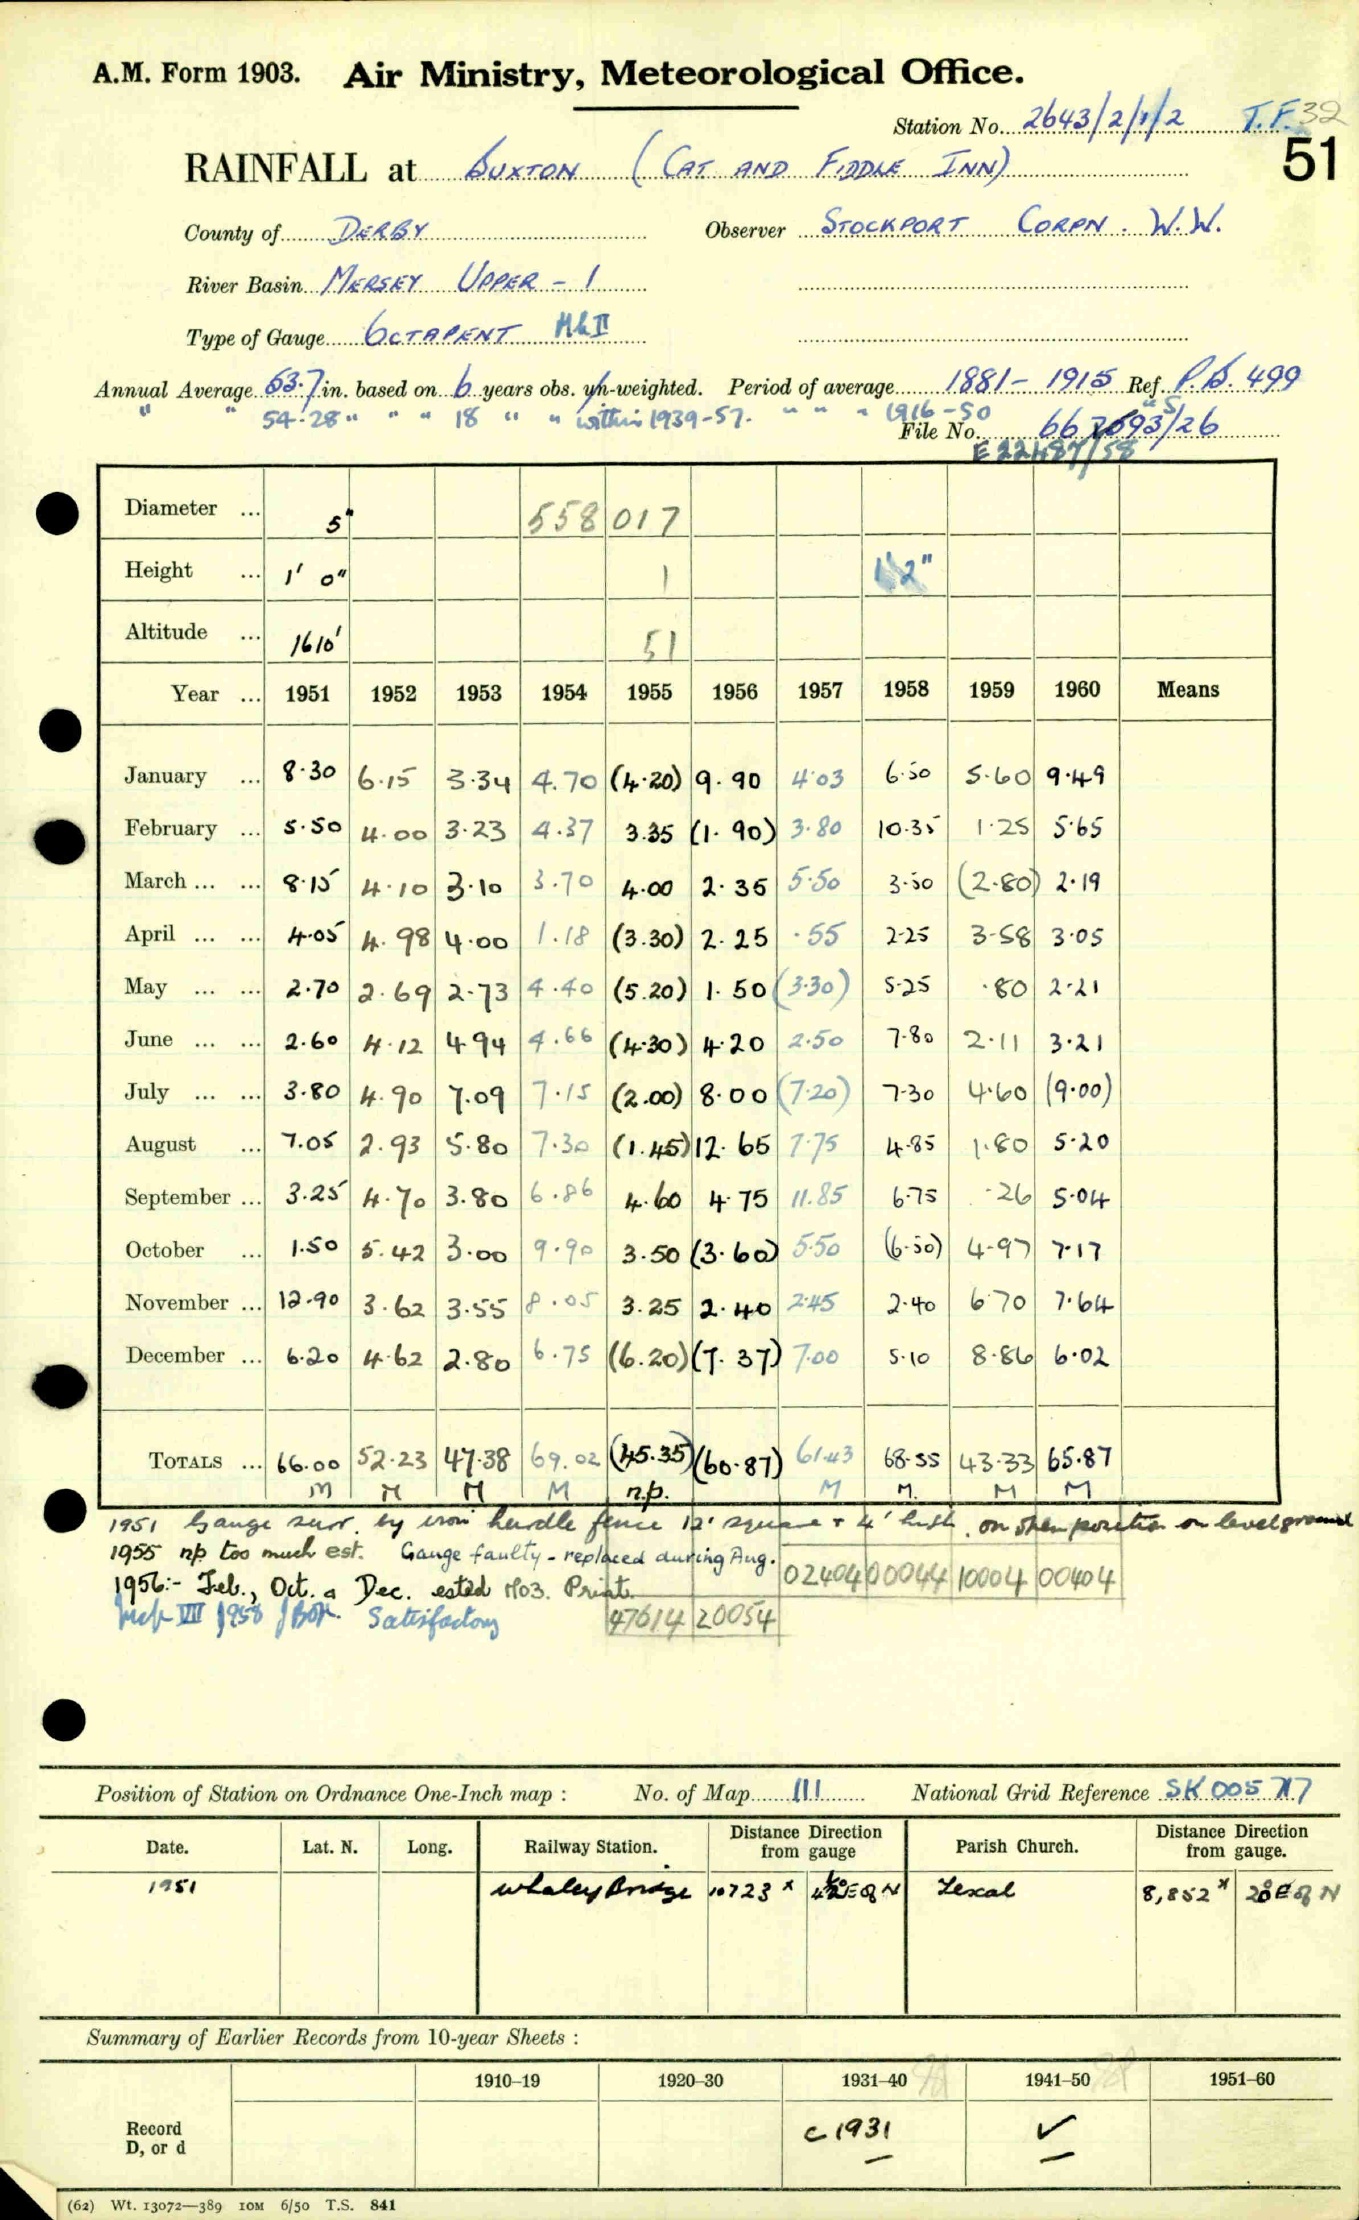 A.M. Form 1903. Air Ministry, Meteorological Office.
Station No. 2643/2/1/2 T.F. 32
RAINFALL at BUXTON (CAT AND FIDDLE INN) 51
County of DERBY Observer STOCKPORT CORPN. W.W.
River Basin MERSEY UPPER - 1
Type of Gauge OCTAPENT Mk II
Annual Average 63.7 in. based on 6 years obs. un-weighted. Period of average 1881 - 1915 Ref. P.S. 499
" " 54.28 " " " 18 " " within 1939-57. " " " 1916-50 " S
File No. 66 /26
E 22487/58
Diameter ... 5" 558 017
Height ... 1' 0" 1 1' 2"
Altitude ... 1610' 51
Year ... 1951 1952 1953 1954 1955 1956 1957 1958 1959 1960 Means
January ... 8.30 6.15 3.34 4.70 (4.20) 9.90 4.03 6.50 5.60 9.49
February ... 5.50 4.00 3.23 4.37 3.35 (1.90) 3.80 10.35 1.25 5.65
March ... ... 8.15 4.10 3.10 3.70 4.00 2.35 5.50 3.50 (2.80) 2.19
April ... ... 4.05 4.98 4.00 1.18 (3.30) 2.25 .55 2.25 3.58 3.05
May ... ... 2.70 2.69 2.73 4.40 (5.20) 1.50 (3.30) 5.25 .80 2.21
June ... ... 2.60 4.12 4.94 4.66 (4.30) 4.20 2.50 7.80 2.11 3.21
July ... ... 3.80 4.90 7.09 7.15 (2.00) 8.00 (7.20) 7.30 4.60 (9.00)
August ... 7.05 2.93 5.80 7.30 (1.45) 12.65 7.75 4.85 1.80 5.20
September ... 3.25 4.70 3.80 6.86 4.60 4.75 11.85 6.75 .26 5.04
October ... 1.50 5.42 3.00 9.90 3.50 (3.60) 5.50 (6.50) 4.97 7.17
November ... 12.90 3.62 3.55 8.05 3.25 2.40 2.45 2.40 6.70 7.64
December ... 6.20 4.62 2.80 6.75 (6.20) (7.37) 7.00 5.10 8.86 6.02
TOTALS ... 66.00 52.23 47.38 69.02 (45.35) (60.87) 61.43 68.55 43.33 65.87
M M M M n.p. M M. M M
1951 Gauge surr. by iron hurdle fence 12' square + 4' high, on open position on level ground
1955 np too much est. Gauge faulty - replaced during Aug.
02404 00044 10004 00404
1956:- Feb., Oct. & Dec. ested MO3. Print.
Insp VII 1958 Satisfactory
47614 20054
Position of Station on Ordnance One-Inch map : No. of Map 111 National Grid Reference SK 005 717
Date. Lat. N. Long. Railway Station. Distance from gauge Direction Parish Church. Distance from gauge. Direction
1951 Whaley Bridge 10723 x E of N Taxal 8,852 x 20° E of N
Summary of Earlier Records from 10-year Sheets :
1910–19 1920–30 1931–40 1941–50 1951–60
Record D, or d c 1931 ✓
(62) Wt. 13072—389 10M 6/50 T.S. 841